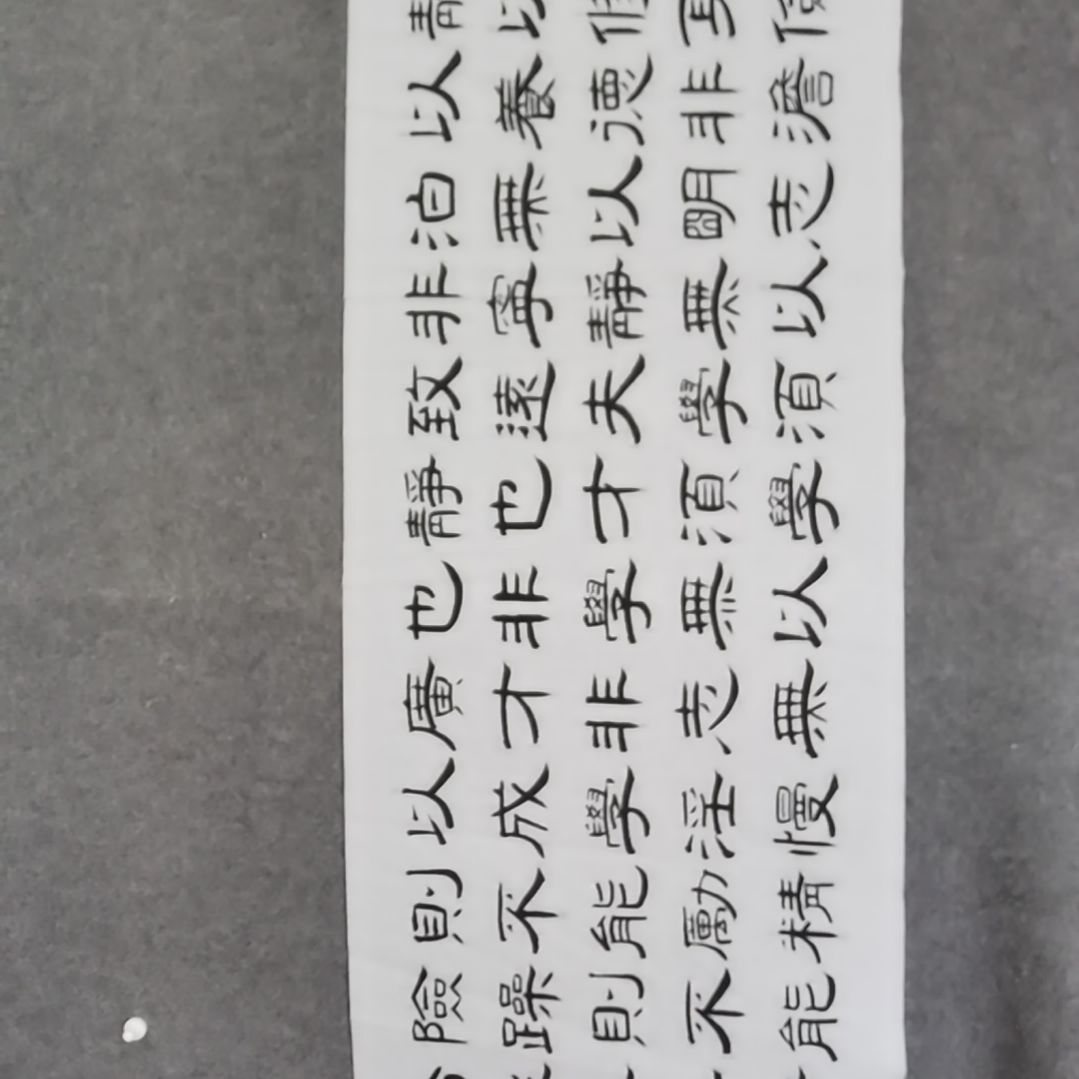 以養德非澹
泊無以明志
非寧靜無以
致遠夫學須
靜也才須學
也非學無以
廣才非志無
以成學淫慢
則不能勵精
險躁則不能